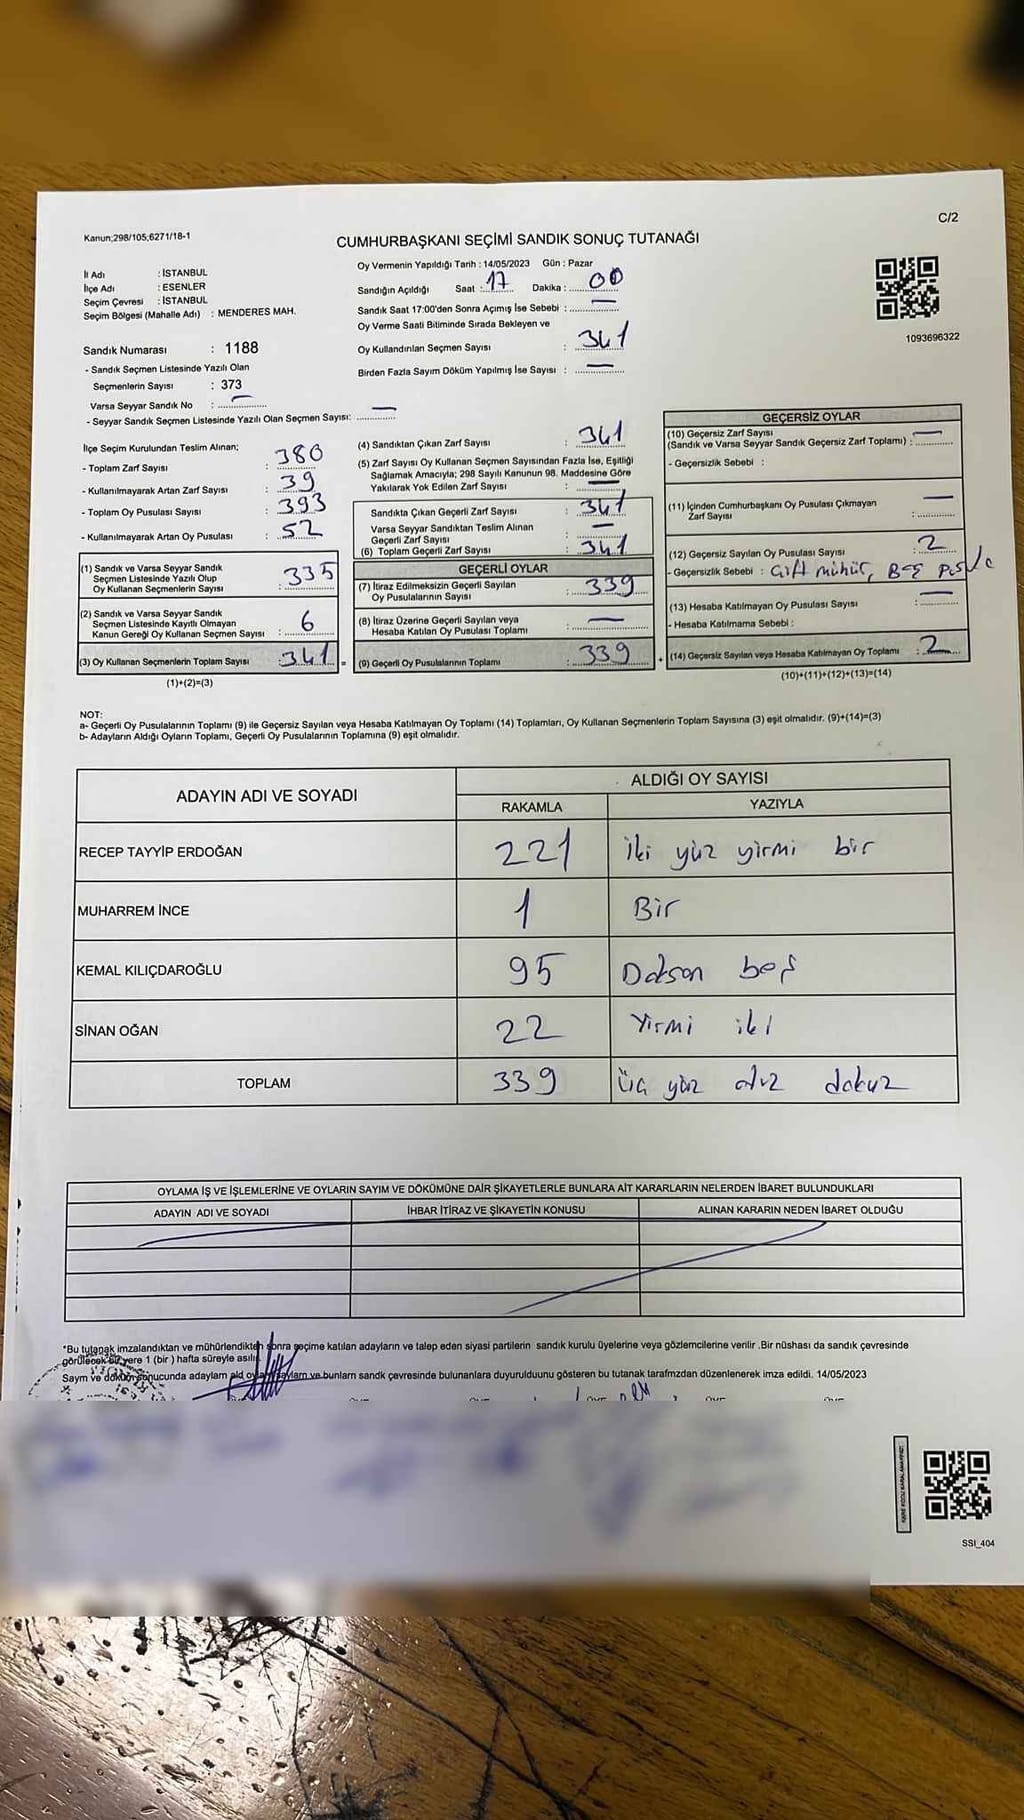 C/2
Kanun;298/105,6271/18-1
CUMHURBAŞKANI SEÇİMİ SANDIK SONUÇ TUTANAĞI
İl Adı : İSTANBUL
İlçe Adı : ESENLER
Seçim Çevresi : İSTANBUL
Seçim Bölgesi (Mahalle Adı) : MENDERES MAH.
Sandık Numarası : 1188
- Sandık Seçmen Listesinde Yazılı Olan
Seçmenlerin Sayısı : 373
Varsa Seyyar Sandık No : —
- Seyyar Sandık Seçmen Listesinde Yazılı Olan Seçmen Sayısı: —
Oy Vermenin Yapıldığı Tarih : 14/05/2023 Gün : Pazar
Sandığın Açıldığı Saat : 17 Dakika : 00
Sandık Saat 17:00'den Sonra Açımış İse Sebebi : —
Oy Verme Saati Bitiminde Sırada Bekleyen ve
Oy Kullandırılan Seçmen Sayısı : 341
Birden Fazla Sayım Döküm Yapılmış İse Sayısı : —
1093696322
İlçe Seçim Kurulundan Teslim Alınan;
- Toplam Zarf Sayısı : 380
- Kullanılmayarak Artan Zarf Sayısı : 39
- Toplam Oy Pusulası Sayısı : 393
- Kullanılmayarak Artan Oy Pusulası : 52
(1) Sandık ve Varsa Seyyar Sandık
Seçmen Listesinde Yazılı Olup
Oy Kullanan Seçmenlerin Sayısı : 335
(2) Sandık ve Varsa Seyyar Sandık
Seçmen Listesinde Kayıtlı Olmayan
Kanun Gereği Oy Kullanan Seçmen Sayısı : 6
(3) Oy Kullanan Seçmenlerin Toplam Sayısı : 341 =
(1)+(2)=(3)
(4) Sandıktan Çıkan Zarf Sayısı : 341
(5) Zarf Sayısı Oy Kullanan Seçmen Sayısından Fazla İse, Eşitliği
Sağlamak Amacıyla; 298 Sayılı Kanunun 98. Maddesine Göre
Yakılarak Yok Edilen Zarf Sayısı : —
Sandıkta Çıkan Geçerli Zarf Sayısı : 341
Varsa Seyyar Sandıktan Teslim Alınan
Geçerli Zarf Sayısı : —
(6) Toplam Geçerli Zarf Sayısı : 341
GEÇERLİ OYLAR
(7) İtiraz Edilmeksizin Geçerli Sayılan
Oy Pusulalarının Sayısı : 339
(8) İtiraz Üzerine Geçerli Sayılan veya
Hesaba Katılan Oy Pusulası Toplamı : —
(9) Geçerli Oy Pusulalarının Toplamı : 339 +
GEÇERSİZ OYLAR
(10) Geçersiz Zarf Sayısı
(Sandık ve Varsa Seyyar Sandık Geçersiz Zarf Toplamı) : —
- Geçersizlik Sebebi :
(11) İçinden Cumhurbaşkanı Oy Pusulası Çıkmayan
Zarf Sayısı : —
(12) Geçersiz Sayılan Oy Pusulası Sayısı : 2
- Geçersizlik Sebebi : Çift mühür, Boş pusula
(13) Hesaba Katılmayan Oy Pusulası Sayısı : —
- Hesaba Katılmama Sebebi :
(14) Geçersiz Sayılan veya Hesaba Katılmayan Oy Toplamı : 2
(10)+(11)+(12)+(13)=(14)
NOT:
a- Geçerli Oy Pusulalarının Toplamı (9) ile Geçersiz Sayılan veya Hesaba Katılmayan Oy Toplamı (14) Toplamları, Oy Kullanan Seçmenlerin Toplam Sayısına (3) eşit olmalıdır. (9)+(14)=(3)
b- Adayların Aldığı Oyların Toplamı, Geçerli Oy Pusulalarının Toplamına (9) eşit olmalıdır.
ADAYIN ADI VE SOYADI
ALDIĞI OY SAYISI
RAKAMLA YAZIYLA
RECEP TAYYİP ERDOĞAN 221 iki yüz yirmi bir
MUHARREM İNCE 1 Bir
KEMAL KILIÇDAROĞLU 95 Doksan beş
SİNAN OĞAN 22 Yirmi iki
TOPLAM 339 üç yüz otuz dokuz
OYLAMA İŞ VE İŞLEMLERİNE VE OYLARIN SAYIM VE DÖKÜMÜNE DAİR ŞİKAYETLERLE BUNLARA AİT KARARLARIN NELERDEN İBARET BULUNDUKLARI
ADAYIN ADI VE SOYADI İHBAR İTİRAZ VE ŞİKAYETİN KONUSU ALINAN KARARIN NEDEN İBARET OLDUĞU
*Bu tutanak imzalandıktan ve mühürlendikten sonra seçime katılan adayların ve talep eden siyasi partilerin sandık kurulu üyelerine veya gözlemcilerine verilir .Bir nüshası da sandık çevresinde
görülecek bir yere 1 (bir ) hafta süreyle asılır.
Sayım ve döküm sonucunda adayların ald oyların ve bunlarn sandk çevresinde bulunanlara duyurulduunu gösteren bu tutanak tarafmzdan düzenlenerek imza edildi. 14/05/2023
SSI_404